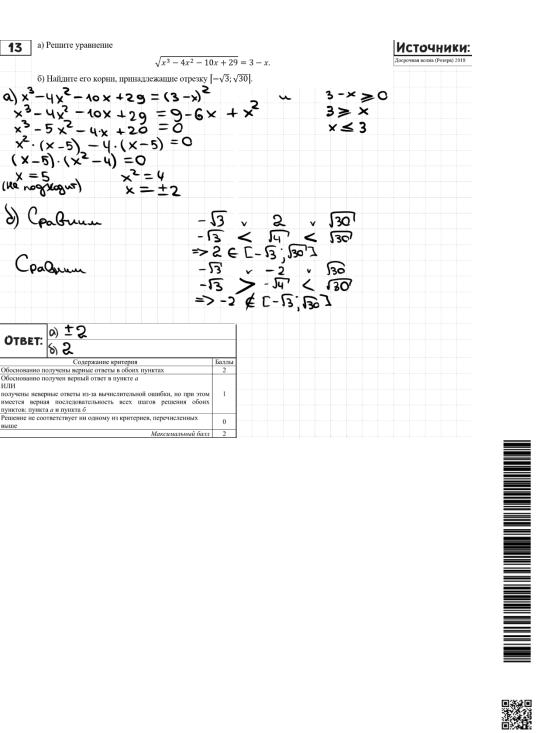 13
а) Решите уравнение
Источники:
Досрочная волна (Резерв) 2018
√(x³ − 4x² − 10x + 29) = 3 − x.
б) Найдите его корни, принадлежащие отрезку [−√3; √30].
а) x³ − 4x² − 10x + 29 = (3 − x)² и 3 − x ⩾ 0
x³ − 4x² − 10x + 29 = 9 − 6x + x² 3 ⩾ x
x³ − 5x² − 4x + 20 = 0 x ⩽ 3
x² · (x − 5) − 4 · (x − 5) = 0
(x − 5) · (x² − 4) = 0
x = 5 x² = 4
(не подходит) x = ±2
б) Сравним −√3 ∨ 2 ∨ √30
−√3 < √4 < √30
=> 2 ∈ [−√3; √30]
Сравним −√3 ∨ −2 ∨ √30
−√3 > −√4 < √30
=> −2 ∉ [−√3; √30]
ОТВЕТ: а) ±2
б) 2
Содержание критерия Баллы
Обоснованно получены верные ответы в обоих пунктах 2
Обоснованно получен верный ответ в пункте а
ИЛИ
получены неверные ответы из-за вычислительной ошибки, но при этом
имеется верная последовательность всех шагов решения обоих
пунктов: пункта а и пункта б 1
Решение не соответствует ни одному из критериев, перечисленных
выше 0
Максимальный балл 2